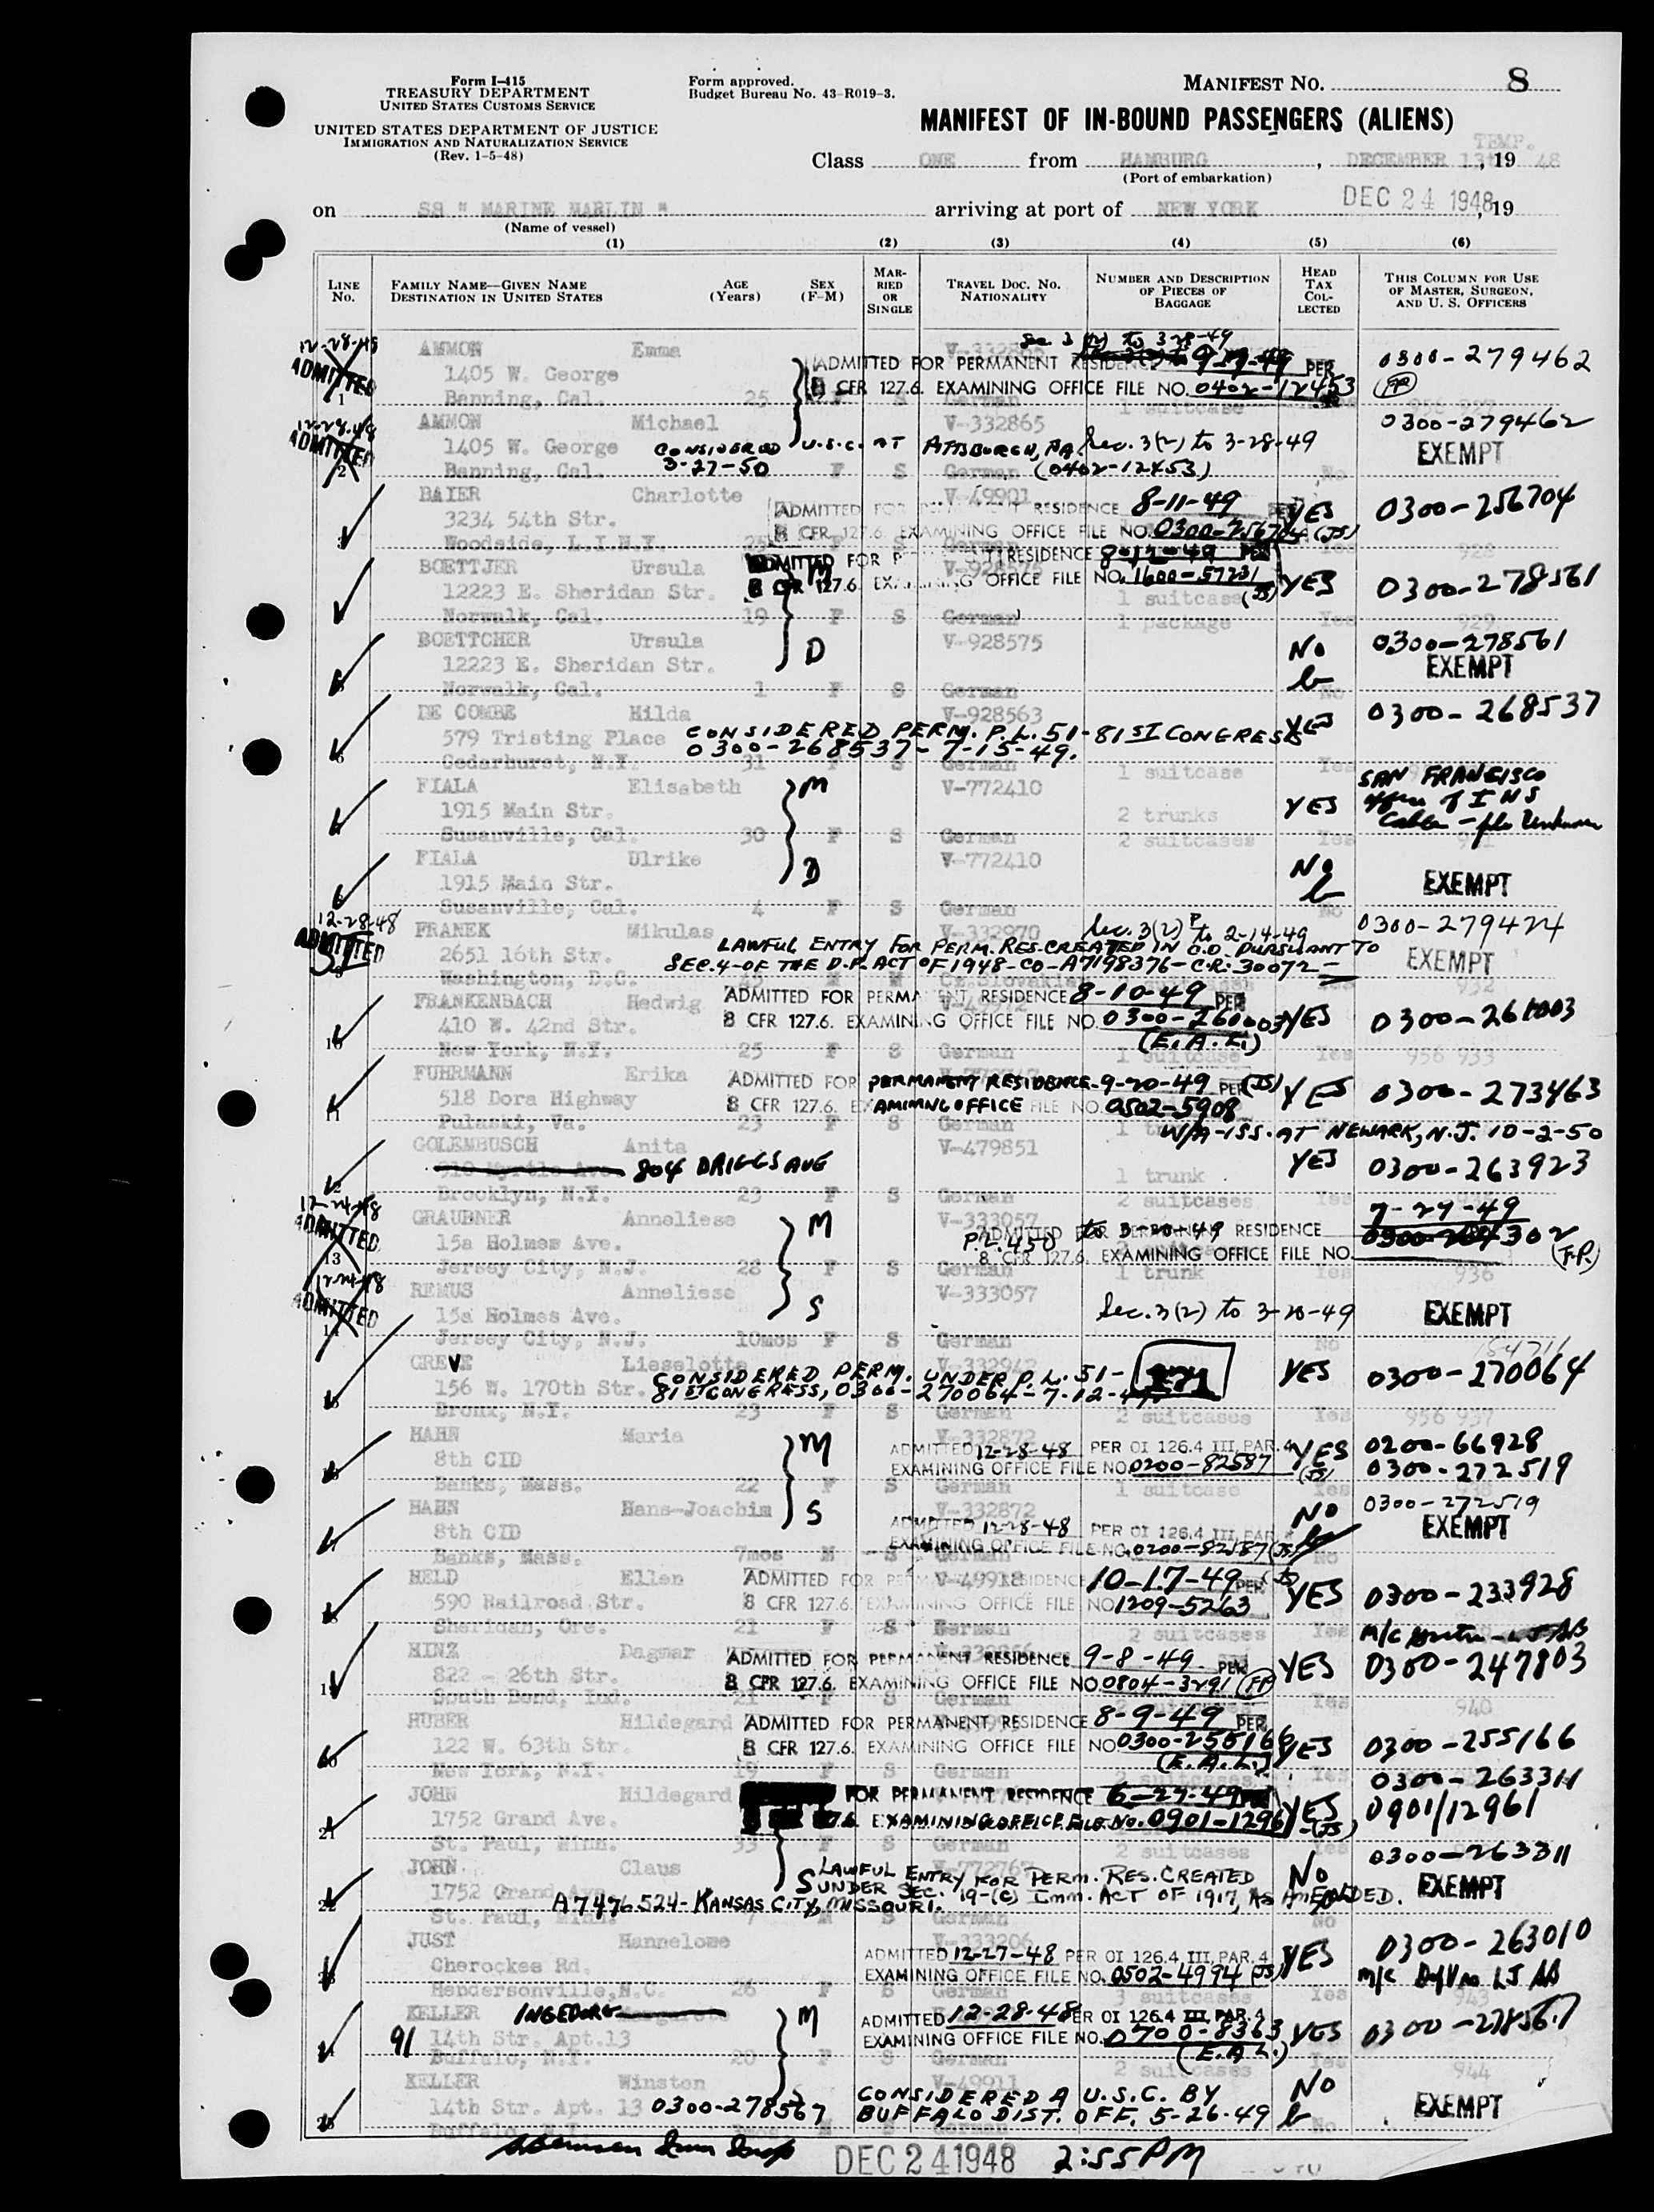 Form I-415
TREASURY DEPARTMENT
UNITED STATES CUSTOMS SERVICE
UNITED STATES DEPARTMENT OF JUSTICE
IMMIGRATION AND NATURALIZATION SERVICE
(Rev. 1-5-48)
Form approved.
Budget Bureau No. 43-R019-3.
MANIFEST NO. 8
MANIFEST OF IN-BOUND PASSENGERS (ALIENS)
TEMP.
Class ONE from HAMBURG, DECEMBER 13th, 19 48
(Port of embarkation)
on SS " MARINE MARLIN " arriving at port of NEW YORK DEC 24 1948, 19
(Name of vessel)
(1) (2) (3) (4) (5) (6)
LINE NO.
FAMILY NAME—GIVEN NAME
DESTINATION IN UNITED STATES
AGE (Years)
SEX (F-M)
MARRIED OR SINGLE
TRAVEL DOC. NO. NATIONALITY
NUMBER AND DESCRIPTION OF PIECES OF BAGGAGE
HEAD TAX COLLECTED
THIS COLUMN FOR USE OF MASTER, SURGEON, AND U. S. OFFICERS
Sec 3 (2) to 3-28-49
AMMON Emma V-332865 ADMITTED FOR PERMANENT RESIDENCE 9-27-49 PER 0300-279462
ADMITTED 1405 W. George 8 CFR 127.6. EXAMINING OFFICE FILE NO. 0402-12453
1 Banning, Cal. 25 F S German 1 suitcase Yes 956 927
12-28-48 AMMON Michael V-332865 0300-279462
ADMITTED 1405 W. George CONSIDERED U.S.C. AT PITTSBURGH, PA. Sec. 3(2) to 3-28-49 EXEMPT
2 Banning, Cal. 3-27-50 F S German (0402-12453) No
BAIER Charlotte V-49901 ADMITTED FOR PERMANENT RESIDENCE 8-11-49 YES 0300-256704
3234 54th Str. 8 CFR 127.6. EXAMINING OFFICE FILE NO. 0300-256704 (JS)
3 Woodside, L.I.N.Y. 25 F S German Yes 928
BOETTJER Ursula V-928575 ADMITTED FOR PERMANENT RESIDENCE 8-12-49 PER
12223 E. Sheridan Str. M 8 CFR 127.6. EXAMINING OFFICE FILE NO. 1600-57231 (JS) 1 suitcase YES 0300-278561
Norwalk, Cal. 19 F S German 1 package Yes 929
BOETTCHER Ursula V-928575 No 0300-278561
12223 E. Sheridan Str. D EXEMPT
5 Norwalk, Cal. 1 F S German No
DE COMBE Hilda V-928563 YES 0300-268537
579 Tristing Place CONSIDERED PERM. P.L. 51-81ST CONGRESS
0300-268537-7-15-49.
6 Cedarhurst, N.Y. 31 F S German 1 suitcase Yes
FIALA Elisabeth M V-772410 SAN FRANCISCO
1915 Main Str. 2 trunks YES office of INS
Susanville, Cal. 30 F S German 2 suitcases Yes
FIALA Ulrike V-772410 No
1915 Main Str. D EXEMPT
Susanville, Cal. 4 F S German No
12-28-48 FRANEK Mikulas V-332970 Sec. 3(2) to 2-14-49 0300-279424
ADMITTED 2651 16th Str. LAWFUL ENTRY FOR PERM. RES. CREATED IN C.O. PURSUANT TO EXEMPT
SEC. 4-OF THE D.P. ACT OF 1948-CO-A7198376-C.R: 30072
9 Washington, D.C. M M Cz.Slovakia 932
FRANKENBACH Hedwig V-49912 ADMITTED FOR PERMANENT RESIDENCE 8-10-49 PER
410 W. 42nd Str. 8 CFR 127.6. EXAMINING OFFICE FILE NO. 0300-261003 YES 0300-261003
(E.A.L.)
10 New York, N.Y. 25 F S German 1 suitcase Yes 956 933
FUHRMANN Erika ADMITTED FOR PERMANENT RESIDENCE-9-20-49 PER (JS) YES 0300-273463
518 Dora Highway 8 CFR 127.6. EXAMINING OFFICE FILE NO. 0502-5908
11 Pulaski, Va. 23 F S German
W/A-ISS. AT NEWARK, N.J. 10-2-50
GOLEMBUSCH Anita V-479851
910 Myrtle Ave. 804 DRIGGS AVE 1 trunk YES 0300-263923
Brooklyn, N.Y. 23 F S German 2 suitcases Yes
12-24-48 GRAUBNER Anneliese M V-333057 7-27-49
ADMITTED 15a Holmes Ave. P.L. 450 ADMITTED FOR PERMANENT RESIDENCE to 3-20-49
8 CFR 127.6. EXAMINING OFFICE FILE NO. 0300-264302 (F.P.)
13 Jersey City, N.J. 28 F S German 1 trunk Yes 936
12-24-48 REMUS Anneliese V-333057
ADMITTED 15a Holmes Ave. S Sec. 3(2) to 3-20-49 EXEMPT
14 Jersey City, N.J. 10mos F S German No
GREVE Lieselotte V-332942
156 W. 170th Str. CONSIDERED PERM. UNDER P.L. 51- 271 YES 0300-270064
81ST CONGRESS, 0300-270064-7-12-49.
Bronx, N.Y. 23 F S German 2 suitcases Yes 956 937
HAHN Maria M V-332872 ADMITTED 12-28-48 PER OI 126.4 III, PAR. 4 YES 0200-66928
8th CID EXAMINING OFFICE FILE NO. 0200-82587 (JS) 0300-272519
Banks, Mass. 22 F S German 1 suitcase Yes 938
HAHN Hans-Joachim S V-332872 NO 0300-272519
8th CID ADMITTED 12-28-48 PER OI 126.4 III, PAR. 4 EXEMPT
EXAMINING OFFICE FILE NO. 0200-82587 (JS)
Banks, Mass. 7mos M S German No
HELD Ellen V-49918 ADMITTED FOR PERMANENT RESIDENCE 10-17-49 PER YES 0300-233928
590 Railroad Str. 8 CFR 127.6. EXAMINING OFFICE FILE NO. 1209-5263
Sheridan, Ore. 21 F S German 2 suitcases Yes
HINZ Dagmar ADMITTED FOR PERMANENT RESIDENCE 9-8-49 PER YES 0300-247803
822 - 26th Str. 8 CFR 127.6. EXAMINING OFFICE FILE NO. 0804-3291 (FP)
South Bend, Ind. 21 F S German Yes 940
HUBER Hildegard ADMITTED FOR PERMANENT RESIDENCE 8-9-49 PER
122 W. 63th Str. 8 CFR 127.6. EXAMINING OFFICE FILE NO. 0300-255166 YES 0300-255166
(E.A.L.)
New York, N.Y. 19 F S German Yes
JOHN Hildegard FOR PERMANENT RESIDENCE 6-27-49 0300-263311
1752 Grand Ave. EXAMINING OFFICE FILE No. 0901-12961 YES (JS) 0901/12961
21 St. Paul, Minn. 33 F S German 2 suitcases Yes
JOHN Claus V-772767 No 0300-263311
S LAWFUL ENTRY FOR PERM. RES. CREATED
1752 Grand Ave. UNDER SEC. 19-(c) IMM. ACT OF 1917, AS AMENDED. EXEMPT
A7476524-KANSAS CITY, MISSOURI.
St. Paul, Minn. 7 M S German No
JUST Hannelore V-333206 ADMITTED 12-27-48 PER OI 126.4, III, PAR. 4 YES 0300-263010
Cherockee Rd. EXAMINING OFFICE FILE NO. 0502-4994 (JS)
Hendersonville, N.C. 26 F S German 3 suitcases Yes 943
KELLER INGEBORG M ADMITTED 12-28-48 PER OI 126.4 III, PAR. 4
91 14th Str. Apt.13 EXAMINING OFFICE FILE NO. 0700-8363 YES 0300-278567
(E.A.L.)
Buffalo, N.Y. 20 F S German 2 suitcases Yes 944
KELLER Winston V-49911 No
CONSIDERED A U.S.C. BY
14th Str. Apt. 13 0300-278567 BUFFALO DIST. OFF. 5-26-49 EXEMPT
Buffalo, N.Y. German No
DEC 24 1948 2:55 PM